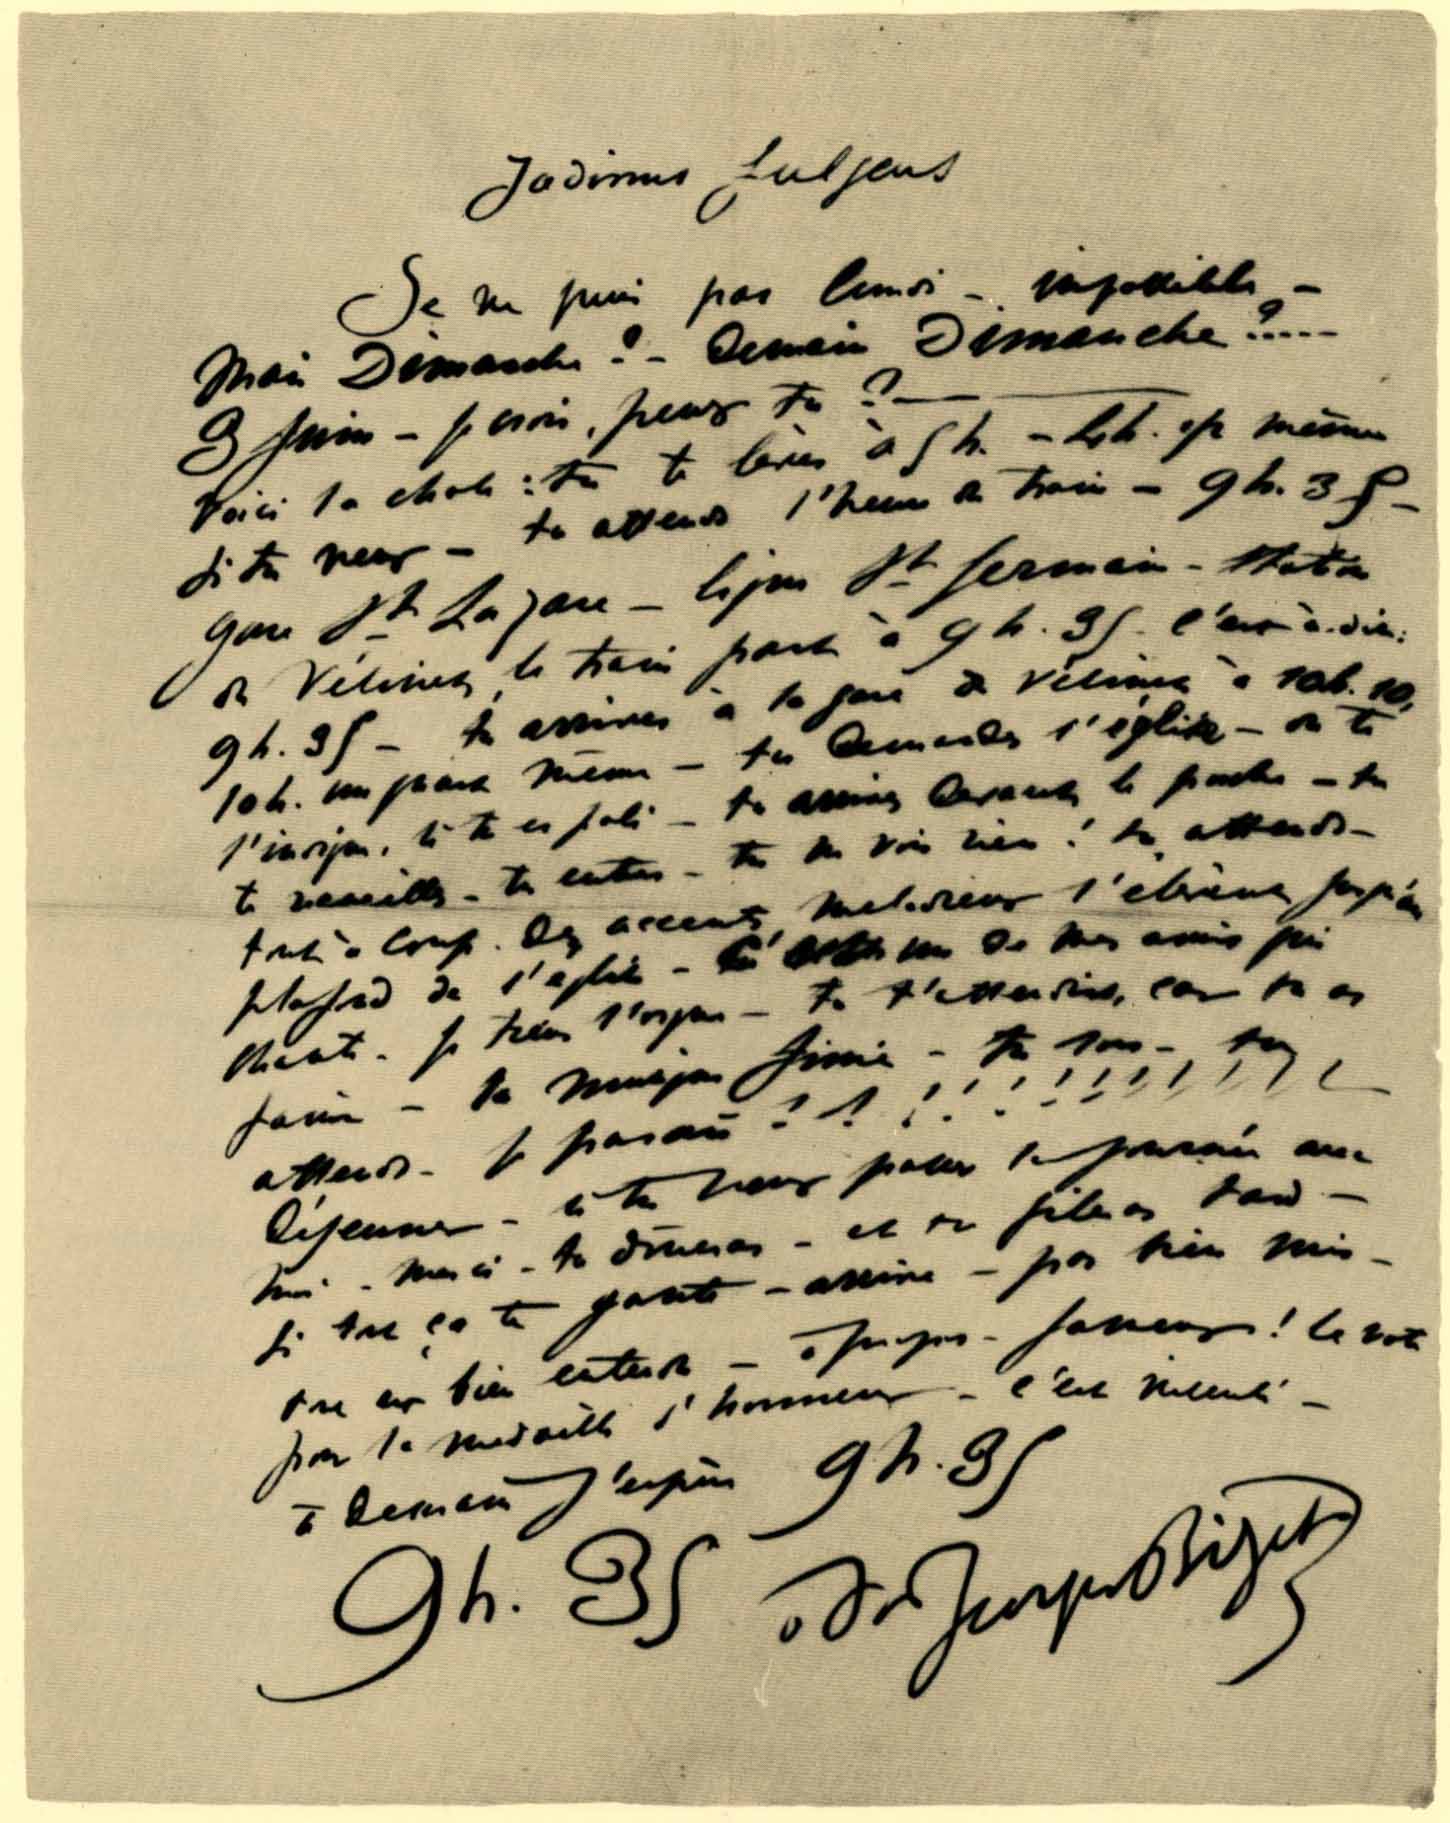 Jadinus fulgens
Je ne puis pas lundi – impossible –
Mais Dimanche ? – Demain Dimanche ?.....
3 Juin – je crois, peux tu ? —
Voici la chose : tu te lèves à 5 h. – h. et même
si tu veux – tu attends l'heure du train – 9 h. 35 –
gare St Lazare – ligne St Germain – station
du Vésinet, le train part à 9 h. 35. c'est-à-dire :
9 h. 35 – tu arrives à la gare du Vésinet à 10h. 10,
10 h. un quart même – tu demandes l'église – on te
l'indique, si tu es poli – tu arrives devant le porche – tu
te recueilles – tu entres – tu ne vois rien ! tu attends –
tout à coup. des accents mélodieux s'élèvent jusqu'au
plafond de l'église – un de mes amis qui
chante – je tiens l'orgue – tu t'attendris, car tu as
faim – la musique finie – tu sors – tu
attends – je parais ! ! ! ! ! ! ! ! ! ! ! ! !
Déjeuner – si tu veux passer la journée avec
moi – merci – tu dîneras – et tu fileras tard –
si tout ça te goûte – arrive – pas bien mis –
tout est bien entendu – à propos – farceur ! le vote
pour la médaille d'honneur – c'est
à demain j'espère 9 h. 35
9 h. 35 à toi Georges Bizet